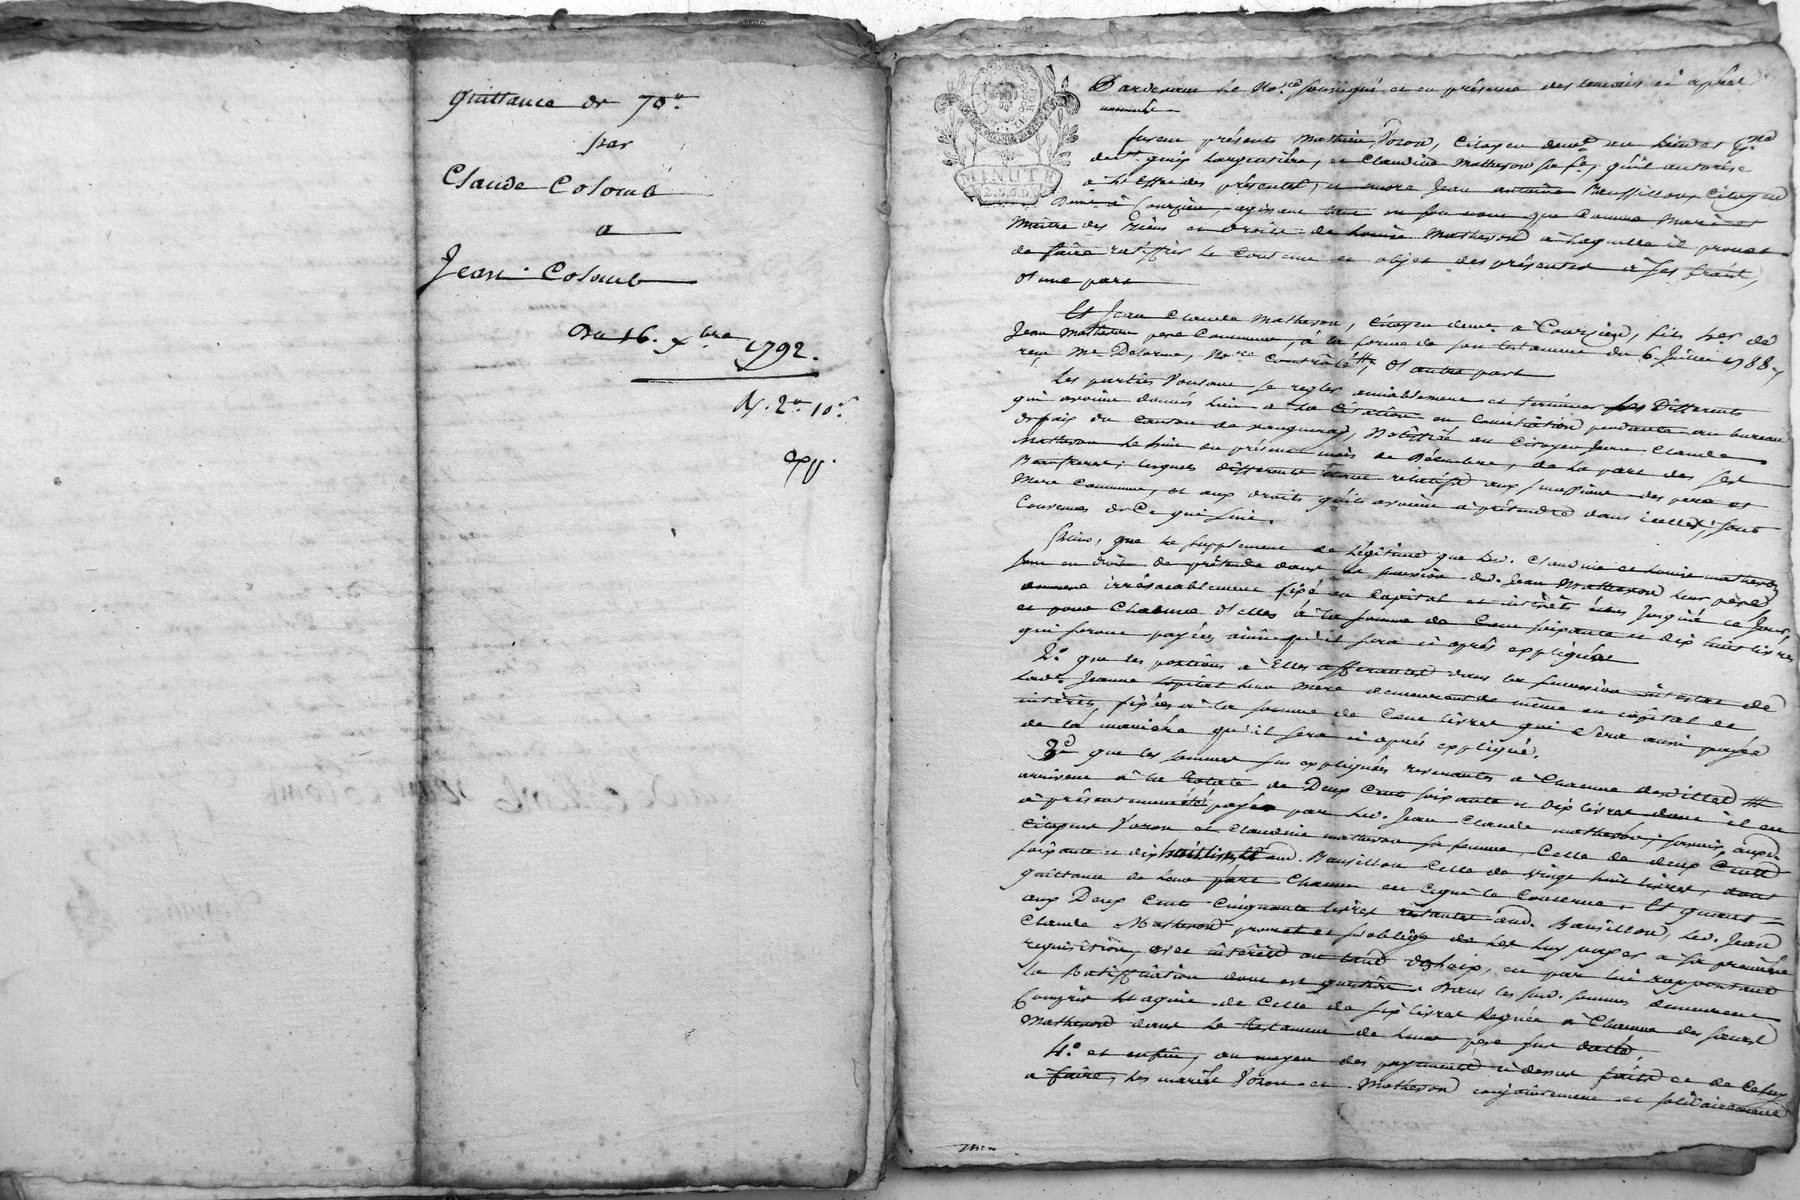 Quittance de 70.lt
par
Claude Colomb
a
Jean Colomb
Du 16. xbre 1792.
R. 2.lt 10.s
MINUTE
Pardevant le No.re soussigné et en présence des temoins ci après
nommés
furent présents Mathieu Voron, Citoyen
et Claudine Matheron sa fe, qu'il autorise
à l'Effet des présentes, et encore Jean antoine Baussillon Citoyen
Demt à Courzieu, agissant tant en son nom que Comme Mari et
Maitre des Biens et droits de Louise Matheron à laquelle il promet
de faire ratiffier le Contenu et objet des présentes à ses frais,
d'une part
Et Jean Claude Matheron, Citoyen demt à Courzieu, fils her de
Jean Matheron pere Commun, à la forme de son testament du 6. Juillet 1788
reçu Me Delorme, Nore Contrôlé, d'autre part
Les parties Voulant se regler amiablement et terminer les Differents
qui avoient donnés lieu à la Citation en Conciliation pendante au bureau
de paix du Canton de Vaugneray, Notiffiée au Citoyen Jean Claude
Matheron le huit du présent mois de Décembre, de la part des ses
Beaufreres; lesquels différents étant relatifs aux successions des pere et
Mere Communs, et aux droits qu'ils avoient à prétendre dans icelles, sont
Convenus de Ce qui suit.
que le supplement de légitime que led. Claudine et Louise matheron
sont en droit de prétendre dans la succession dud. Jean Matheron leur père
demeure irrévocablement fixé en Capital et intérêts échus jusqu'à ce jour,
et pour Chacune d'elles à la somme de Cent soixante et dix huit livres
qui seront payées ainsi qu'il sera ci après expliqué
2.o que les portions à Elles afferantes dans la succession intestat de
lad.e Jeanne leur mere demeurent de même en capital et
intérêts, fixées à la somme de Cent livres qui sera aussi payée
de la manière qu'il sera ci après expliqué.
3.o que les sommes sus expliquées revenantes à Chacune desdittes
arrivent à la totale de Deux Cent soixante et dix livres dont il en
à présent été payée par led. Jean Claude matheron, savoir, auxd.
Citoyens Voron et Claudine matheron sa femme, Celle de deux Cent
soixante et dix huit livres, et aud. Bausillon Celle de vingt huit livres, dont
quittance de leur part Chacun en Ce qui le Concerne. Et quant
aux Deux Cent Cinquante livres restantes aud. Bausillon, led. Jean
Claude Matheron promet et s'oblige de les luy payer à sa première
requisition, avec intérêts au taux des loix, en par lui rapportant
la Ratiffication dont est question. Dans les susd. sommes demeurent
Compris Et aquité de Celle de six livres léguée à Chacune des sœurs
Matheron dans le testament de leur pere sus datté.
4.o et enfin, au moyen des payements ci dessus faits et de Celuy
à faire, les mariés Voron et Matheron conjointement et solidairement